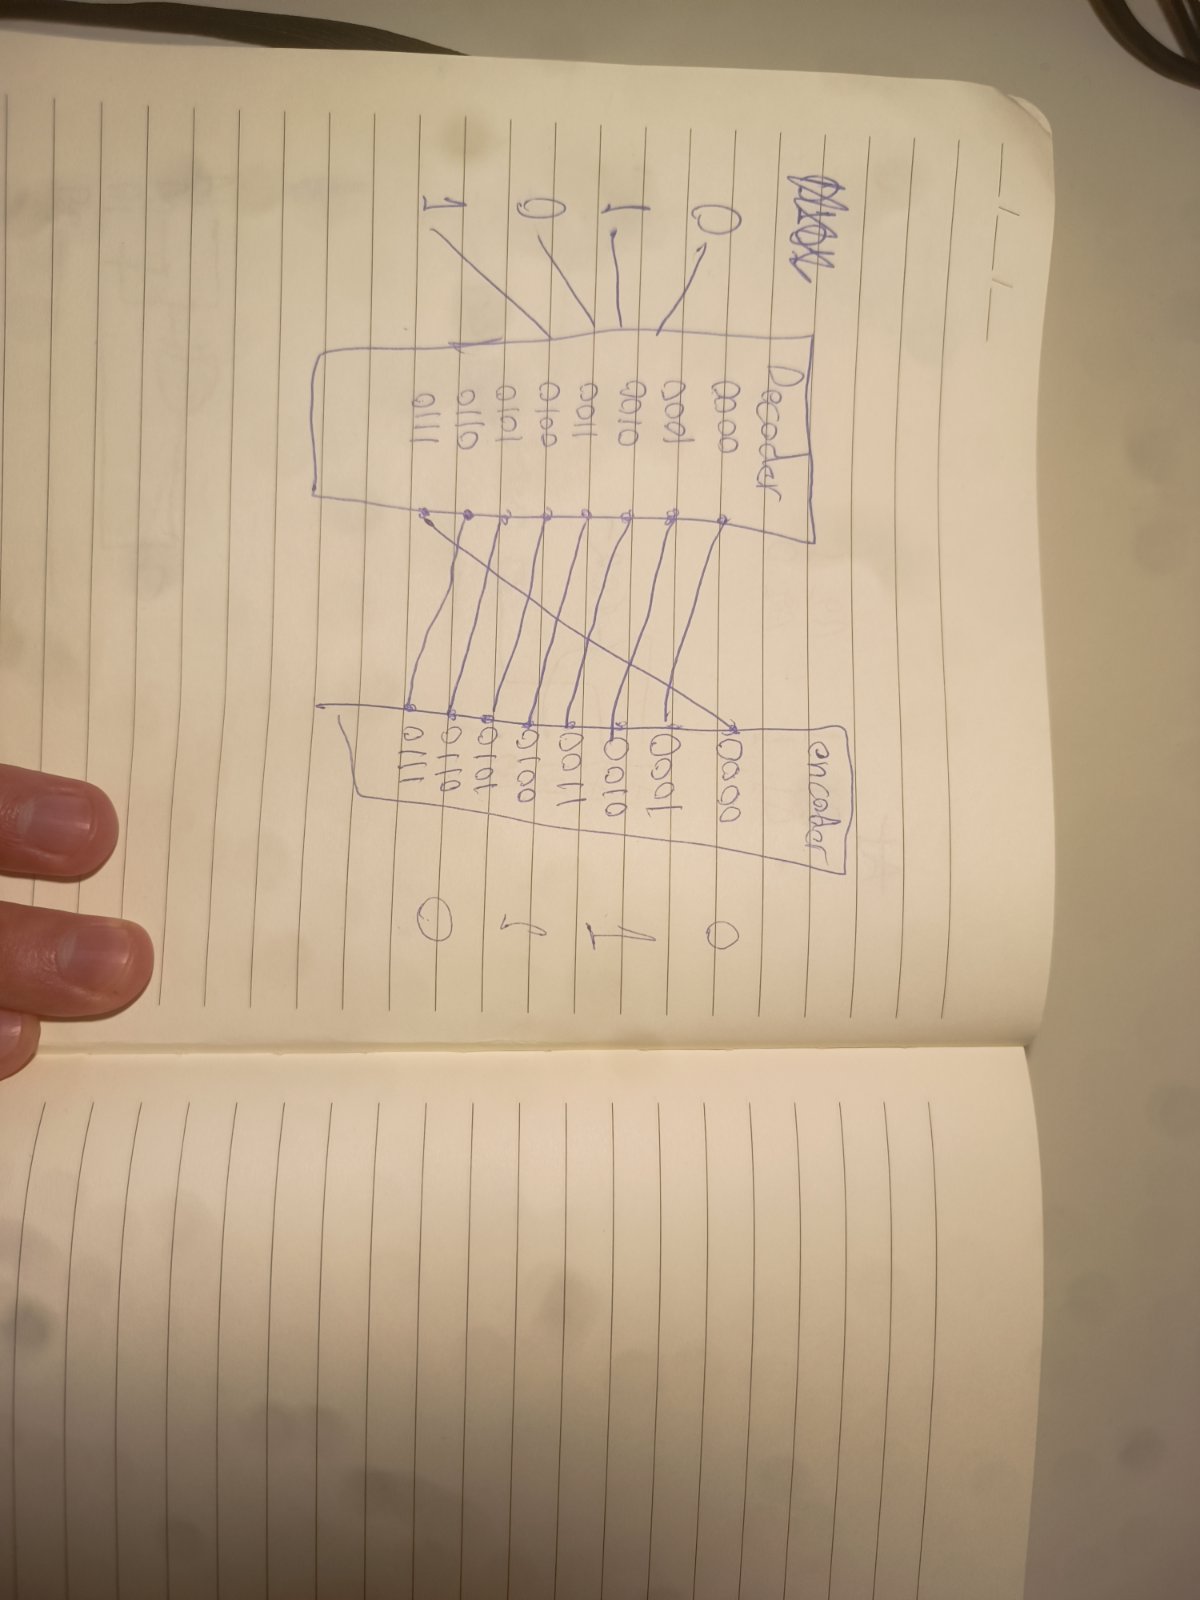 Decoder
0
1
0
1
0000
0001
0010
0011
0100
0101
0110
0111
encoder
0000
0001
0010
0011
0100
0101
0110
0111
0
1
1
0